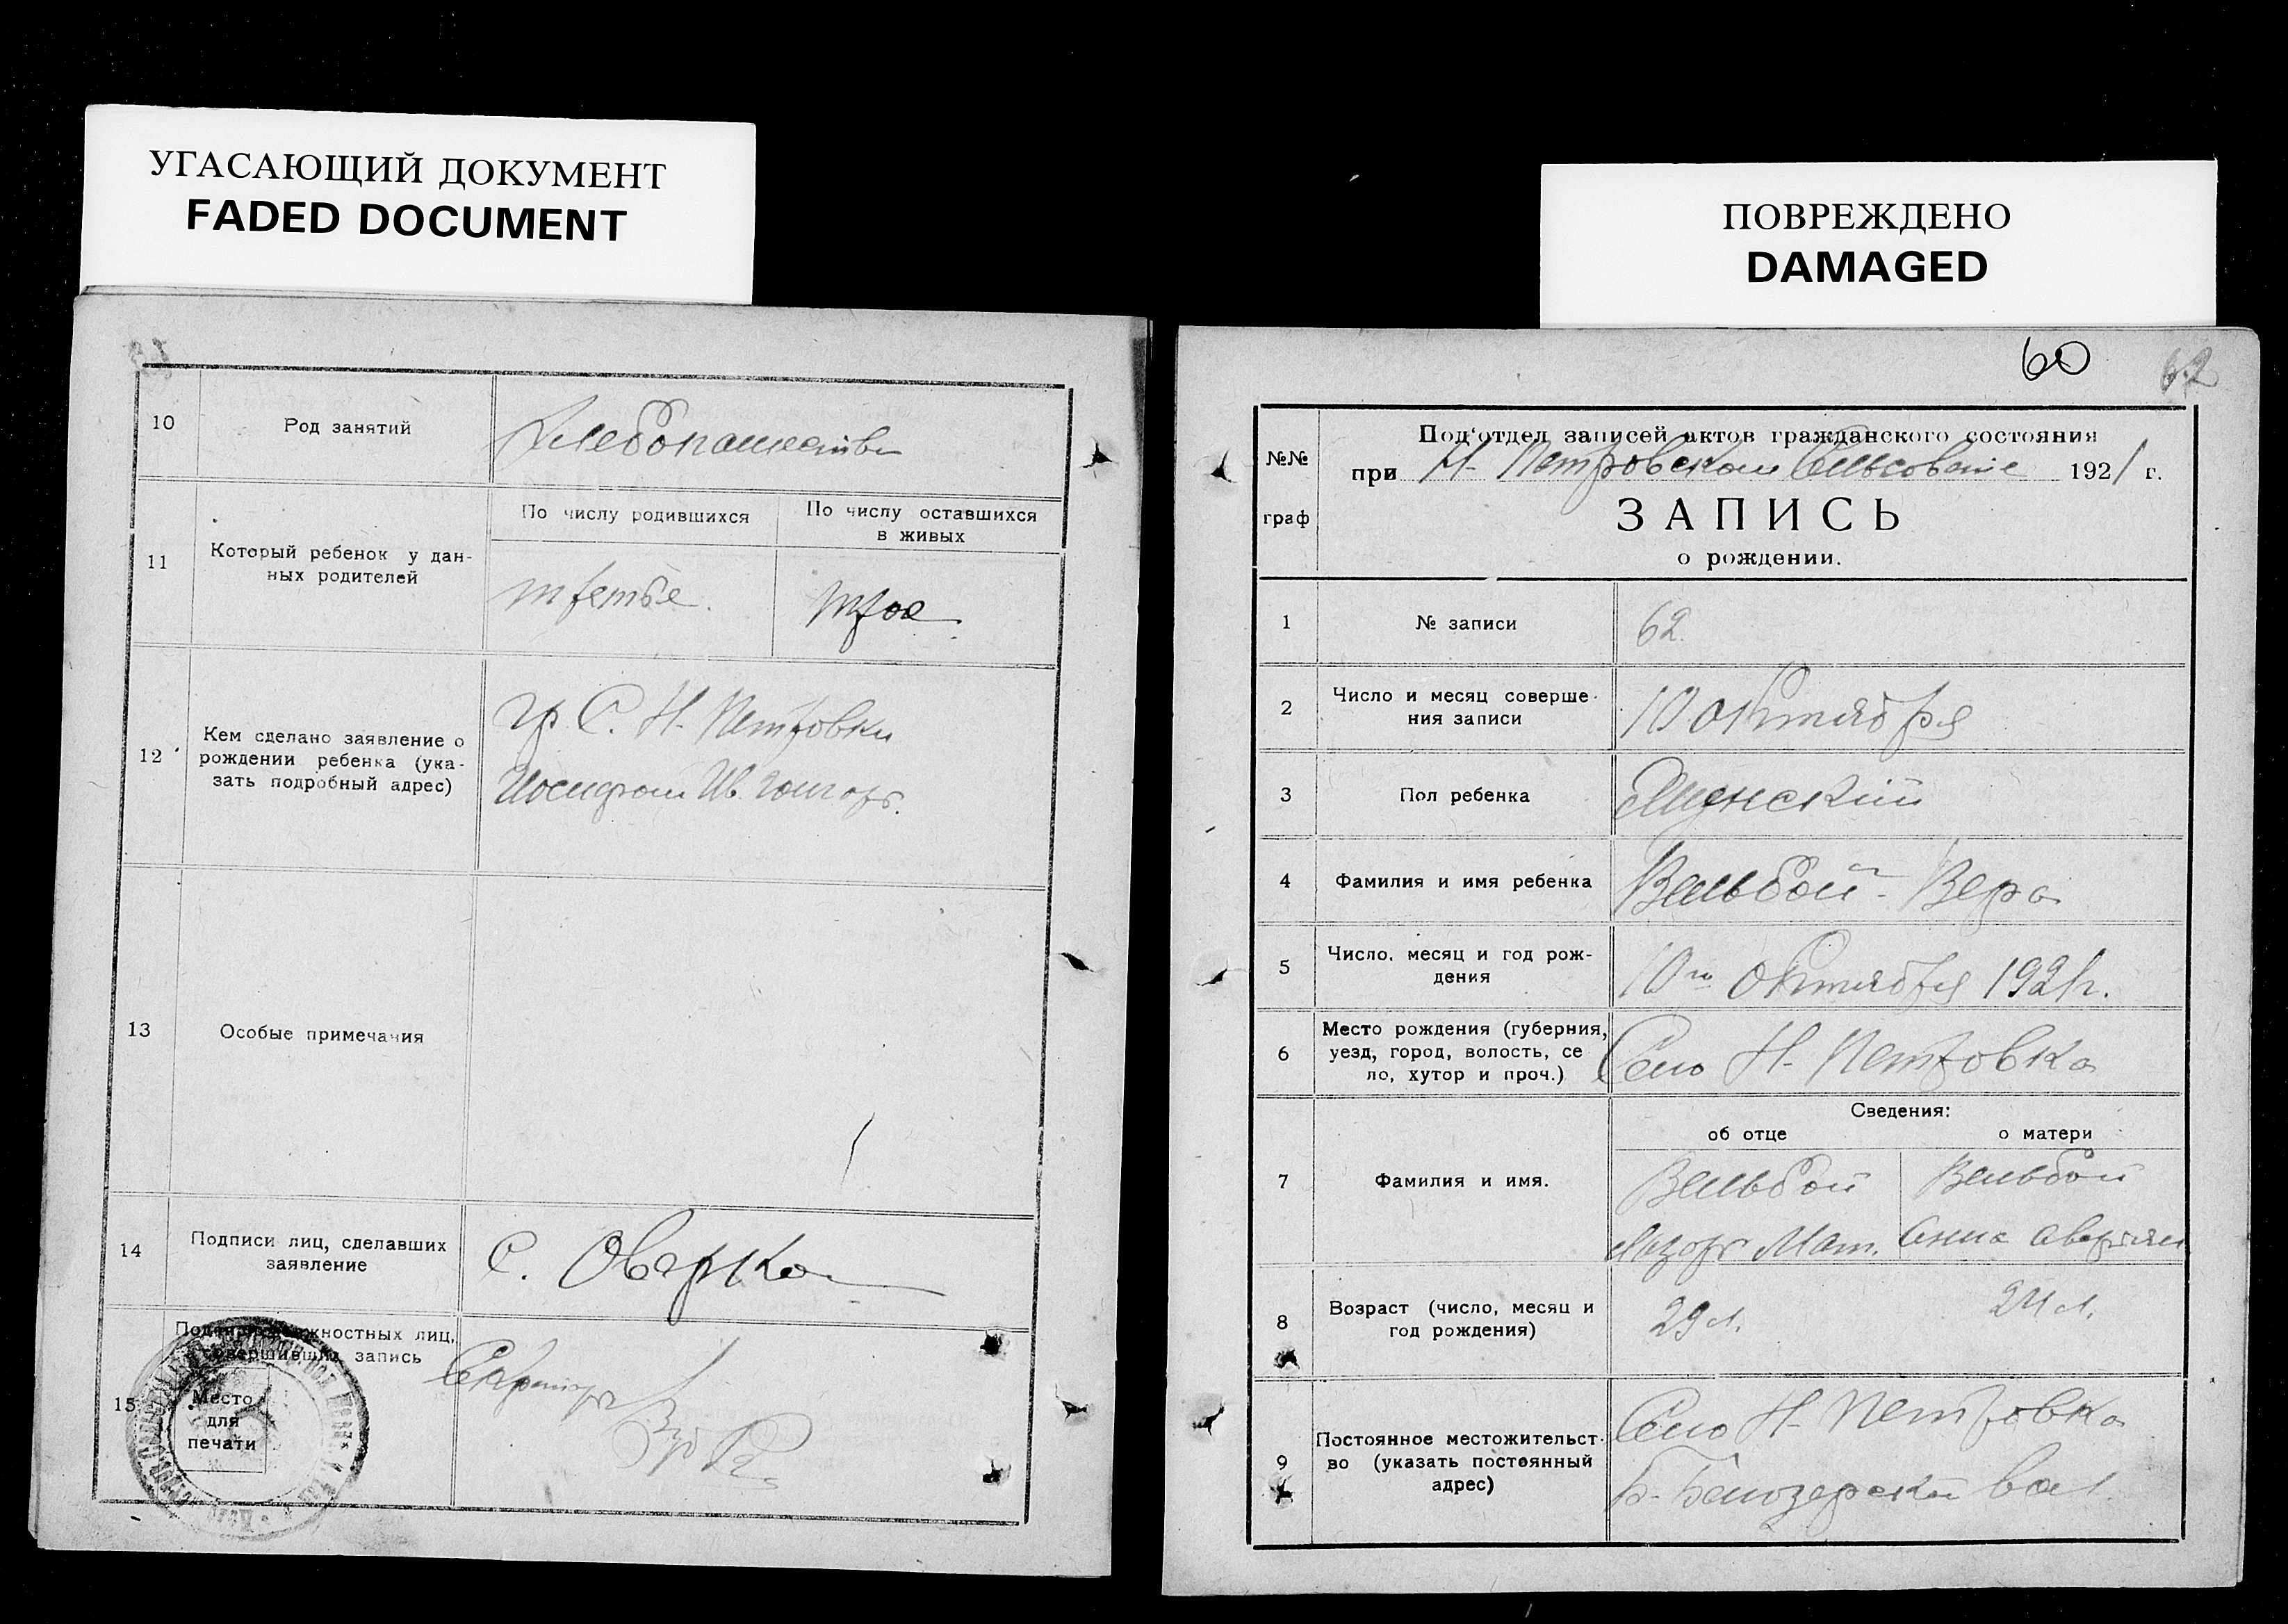 УГАСАЮЩИЙ ДОКУМЕНТ
FADED DOCUMENT
10
Род занятий
Хлебопашество
11
Который ребенок у дан-
ных родителей
По числу родившихся
По числу оставшихся
в живых
третье.
трое
12
Кем сделано заявление о
рождении ребенка (ука-
зать подробный адрес)
гр С. Н-Петровки
Иосифом Ив.
13
Особые примечания
14
Подписи лиц, сделавших
заявление
С.
15
должностных лиц,
совершивших запись
Место
для
печати
Секретарь
ПОВРЕЖДЕНО
DAMAGED
60
62
№№
граф
Под'отдел записей актов гражданского состояния
при Н-Петровском Сельсовете 1921 г.
ЗАПИСЬ
о рождении.
1
№ записи
62.
2
Число и месяц соверше-
ния записи
10 октября
3
Пол ребенка
Женский
4
Фамилия и имя ребенка
Вельбой - Вера
5
Число, месяц и год рож-
дения
10го Октября 1921г.
6
Место рождения (губерния,
уезд, город, волость, се
ло, хутор и проч.)
Село Н-Петровка
7
Фамилия и имя.
Сведения:
об отце
о матери
Вельбой
Лазарь Мат.
Вельбой
Анна
8
Возраст (число, месяц и
год рождения)
29 л.
24 л.
9
Постоянное местожительст-
во (указать постоянный
адрес)
Село Н-Петровка
Б-Белозерской вол.